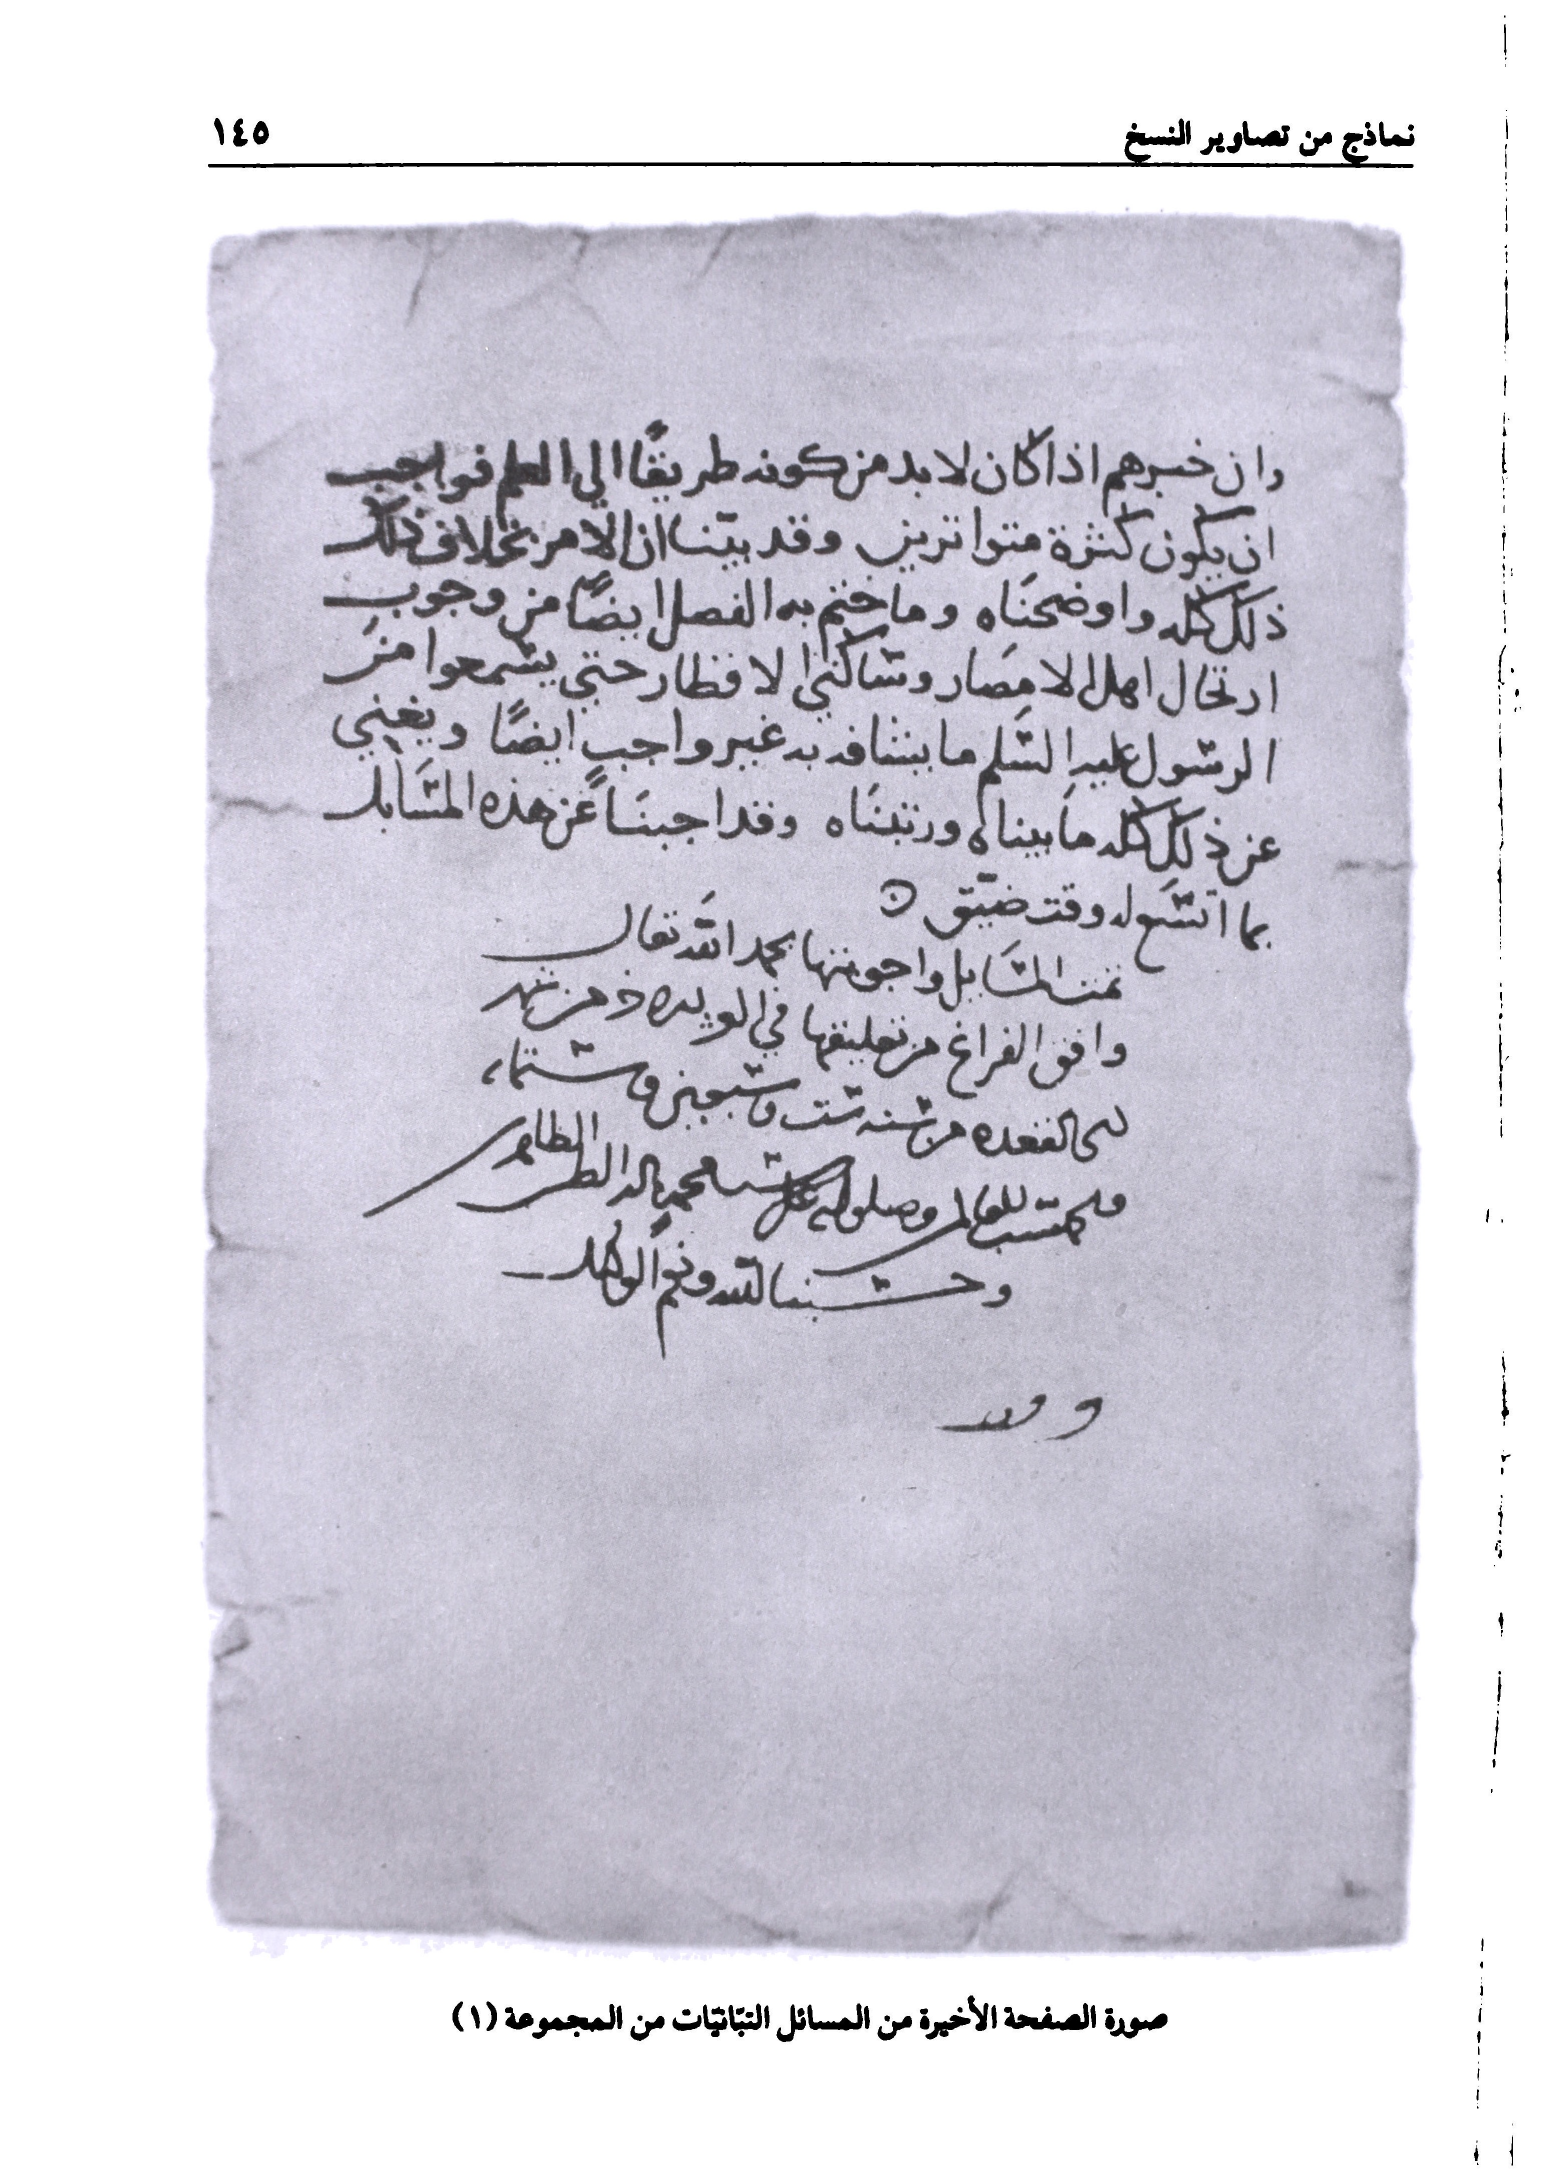 نماذج من تصاوير النسخ ١٤٥
وان خبرهم اذا كان لا بد من كونه طريقًا الي العلم فواجب
ان يكون كثرة متواترين وقد بيّنا ان الامر بخلاف ذلك
ذلك كله واوضحناه وما ختم به الفصل ايضًا من وجوب
ارتحال اهل الامصار وساكني الاقطار حتي يسمعوا من
الرسول عليه السلم ما يشافه به غير واجب ايضًا ويغني
عن ذلك كله ما بيناه ورتبناه وقد اجبنا عن هذه المسايل
بما اتسع له وقت ضيّق
تمت المسايل واجوبتها بحمد الله تعالى
وافق الفراغ من تعليقها في من شهر
القعده من سنه ست وسبعين وستمائه
وصلواته على محمد واله الطاهرين
وحسبنا الله ونعم الوكيل
صورة الصفحة الأخيرة من المسائل التبّانيّات من المجموعة (١)